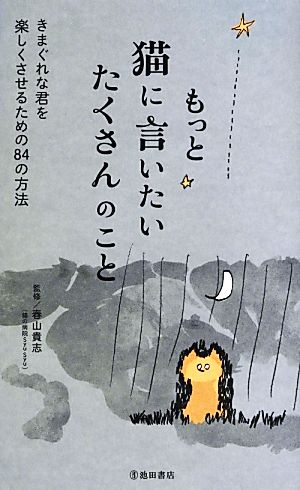 もっと
猫に言いたい
たくさんのこと
きまぐれな君を
楽しくさせるための84の方法
監修/春山貴志
(猫の病院 syu syu)
池田書店